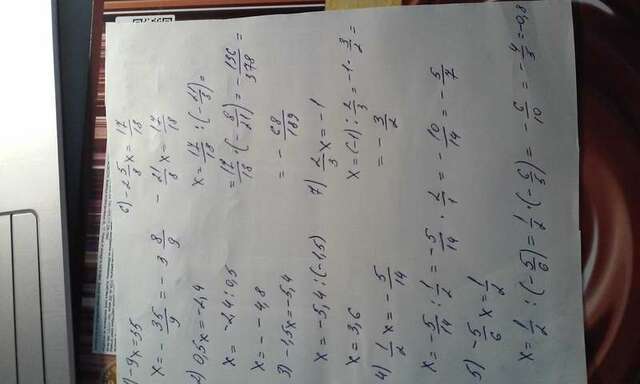 1) -9x=35
x= - 35/9 = - 3 8/9
2) 0,5x=-2,4
x= -2,4:0,5
x= - -4,8
3) -1,5x=-5,4
x= -5,4:(-1,5)
x= 3,6
4) 1/2 x= - 5/14
x= -5/14 : 1/2 = -5/14 · 2/1 = - 10/14 = - 5/7
5) -5/6 x= 1/2
x= 1/2 : (- 5/6)= 1/2 · (- 6/5)= - 6/10 = - 4/5 =-0,8
6) -2 5/8 x= 17/18
- 21/8 x= 17/18
x= 17/18 : (- 21/8)=
= 17/18 · (- 8/21)= - 136/378 =
= - 68/189
7) 2/3 x= -1
x= (-1) : 2/3 = -1 · 3/2 =
= - 3/2